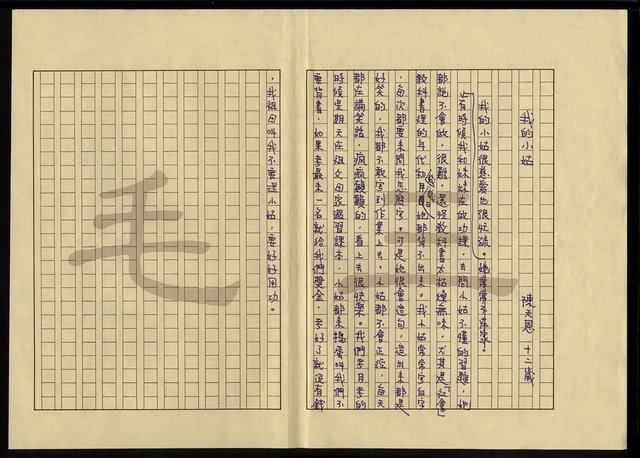 我的小姑
陳天恩 十二歲
我的小姑很慈愛也很忙碌。她常常不在家。
有時候我和妹妹在做功課,去問小姑不懂的習題,她
都說不會做,很難,還怪教科書太枯燥無味,尤其是「社會」
教科書裡的年代和月日她都背不出來。我小姑常常寫白字
,每次都要來問我怎麼寫。可是她很會造句,造出來都是
好笑的,我都不敢寫到作業上去,小姑都不會正經,每天
都在講笑話,瘋瘋癲癲的,看上去很快樂。我們考月考的
時候星期天在祖父母家溫習課本,小姑都來搗蛋叫我們不
要背書,如果考最末一名就給我們獎金,考好了就沒有錢
,我祖母叫我不要理小姑,要好好用功。
毛